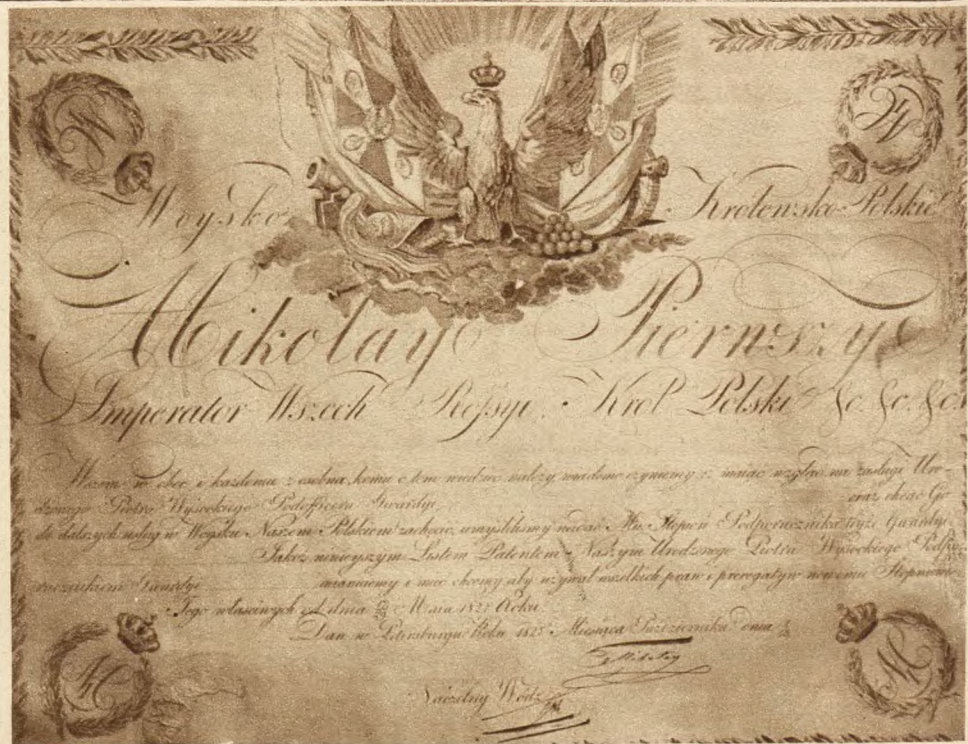 Woysko Krolewsko Polskie
Mikołay Pierwszy
Imperator Wszech Rossyi, Krol Polski &c. &c. &c.
Wszem w obec i każdemu z osobna komu o tem wiedzieć należy wiadomo czyniemy iż maiąc wzgląd na zasługi Uro-
dzonego Piotra Wysockiego Podofficera Gwardyi oraz chcąc Go
do dalszych usług w Woysku Naszem Polskiem zachęcić, umyśliliśmy nadać Mu Stopień Podporucznika teyże Gwardyi
Jakoż ninieyszym Listem Patentem Naszym Urodzonego Piotra Wysockiego Podpo-
rucznikiem Gwardyi mianuiemy i mieć chcemy aby używał wszelkich praw i prerogatyw nowemu Stopniowi
Jego właściwych od dnia Maia 1828 Roku
Dan w Petersburgu Roku 1828 Miesiąca Października dnia
Mikołay
Naczelny Wodz